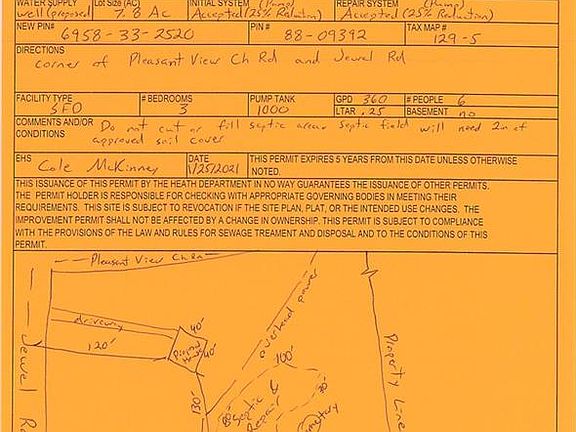 WATER SUPPLY Lot Size (AC) INITIAL SYSTEM (Pump) REPAIR SYSTEM (Pump)
well (proposed) 7.8 Ac Accepted (25% Reduction) Accepted (25% Reduction)
NEW PIN# 6958-33-2520 PIN # 88-09392 TAX MAP # 129-5
DIRECTIONS
corner of Pleasant View Ch Rd and Jewel Rd
FACILITY TYPE # BEDROOMS PUMP TANK GPD 360 # PEOPLE 6
SFD 3 1000 LTAR .25 BASEMENT no
COMMENTS AND/OR CONDITIONS Do not cut or fill septic area. Septic field will need 2in of
approved soil cover
EHS Cole McKinney DATE 1/25/2021 THIS PERMIT EXPIRES 5 YEARS FROM THIS DATE UNLESS OTHERWISE
NOTED.
THIS ISSUANCE OF THIS PERMIT BY THE HEATH DEPARTMENT IN NO WAY GUARANTEES THE ISSUANCE OF OTHER PERMITS.
THE PERMIT HOLDER IS RESPONSIBLE FOR CHECKING WITH APPROPRIATE GOVERNING BODIES IN MEETING THEIR
REQUIREMENTS. THIS SITE IS SUBJECT TO REVOCATION IF THE SITE PLAN, PLAT, OR THE INTENDED USE CHANGES. THE
IMPROVEMENT PERMIT SHALL NOT BE AFFECTED BY A CHANGE IN OWNERSHIP. THIS PERMIT IS SUBJECT TO COMPLIANCE
WITH THE PROVISIONS OF THE LAW AND RULES FOR SEWAGE TREAMENT AND DISPOSAL AND TO THE CONDITIONS OF THIS
PERMIT.
Pleasant View Ch Rd
overhead power
driveway
40'
40'
120'
100'
Property Line
Jewel R
130'
Septic
&
Repair